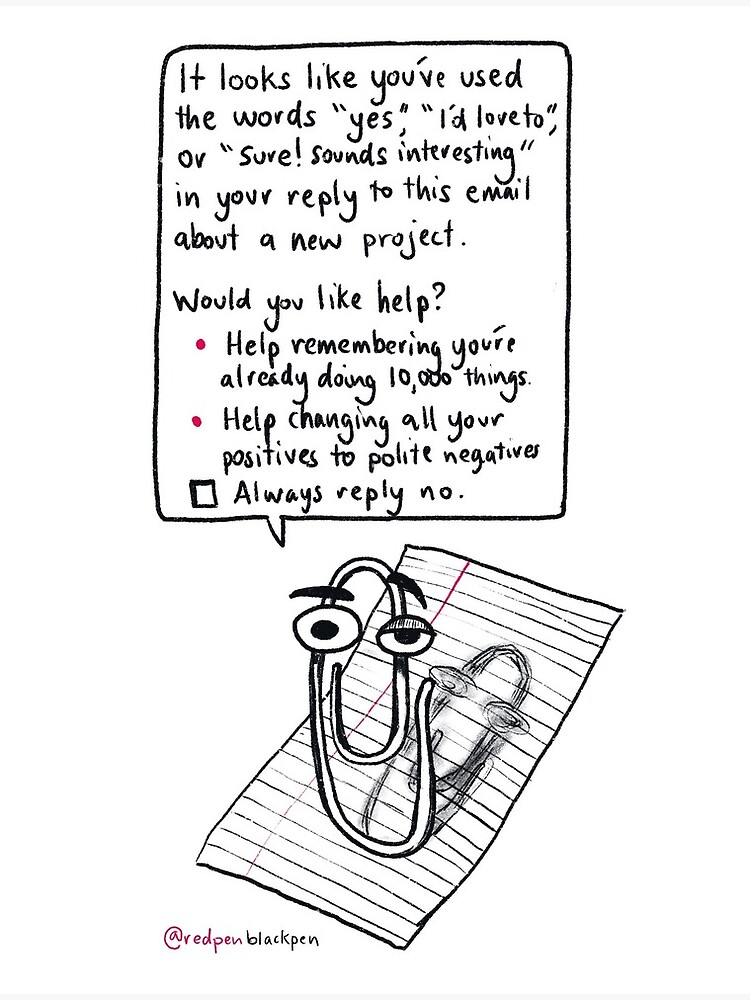 It looks like you've used
the words "yes", "I'd love to",
or "Sure! Sounds interesting"
in your reply to this email
about a new project.
Would you like help?
• Help remembering you're
already doing 10,000 things.
• Help changing all your
positives to polite negatives
☐ Always reply no.
@redpenblackpen